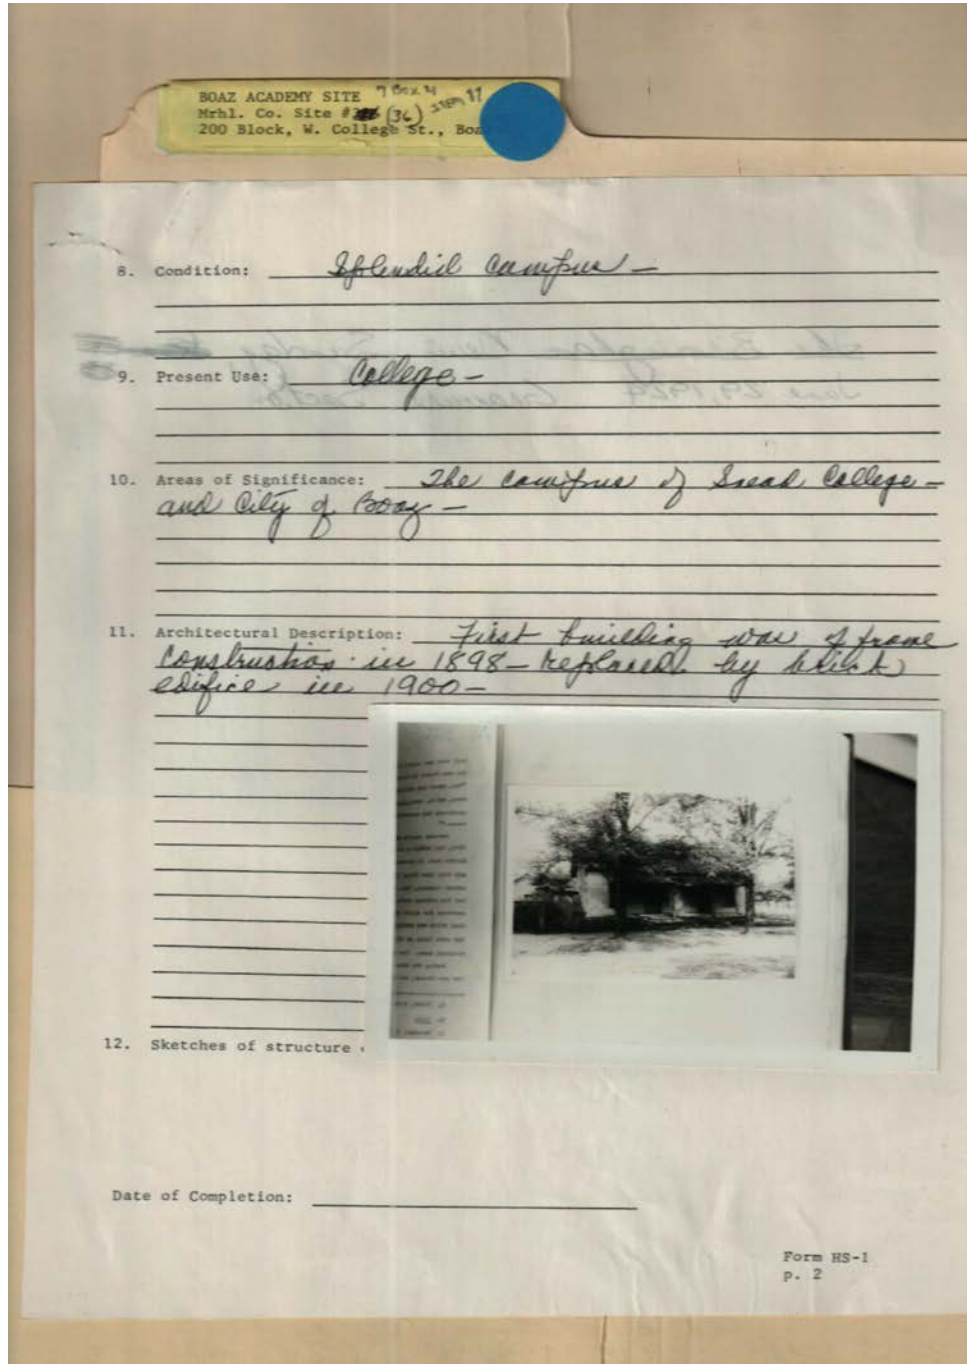 BOAZ ACADEMY SITE 7 Box 4 Item 17
Mrhl. Co. Site # (36)
200 Block, W. College St., Boa
8. Condition: Splendid Campus —
9. Present Use: College —
10. Areas of Significance: The campus of Snead College —
and City of Boaz —
11. Architectural Description: First building was of frame
construction in 1898 — replaced by brick
edifice in 1900 —
12. Sketches of structure
Date of Completion:
Form HS-1
p. 2